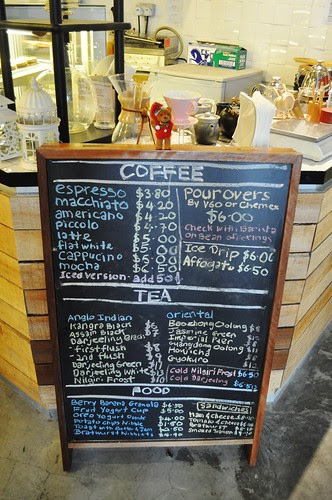 COFFEE
espresso $3.80
macchiato $4.20
americano $4.20
piccolo $4.70
latte $5.00
flat white $5.00
cappucino $5.00
mocha $6.50
Iced version add 50¢
Pourovers
By V60 or Chemex
$6.00
Check with Barista
on Bean offerings
Ice Drip $6.00
Affogato $6.50
TEA
Anglo Indian
Kangra Black
Assam Black
Darjeeling Blends
- first flush
- 2nd flush
Darjeeling Green
Darjeeling White
Nilgiri Frost
oriental
Baozhong Oolong
Jasmine Green
Imperial Puer
Guangdong Oolong
Houjicha
Gyokuro
Cold Nilgiri Frost
Cold Darjeeling
FOOD
Berry Banana Granola
Fruit Yogurt Cup
Oreo Yogurt
Potato Chips
Toast with Butter & Jam
Bratwurst
Sandwiches
Ham & Cheese
Tomato & Cheese
Bratwurst
Smoked